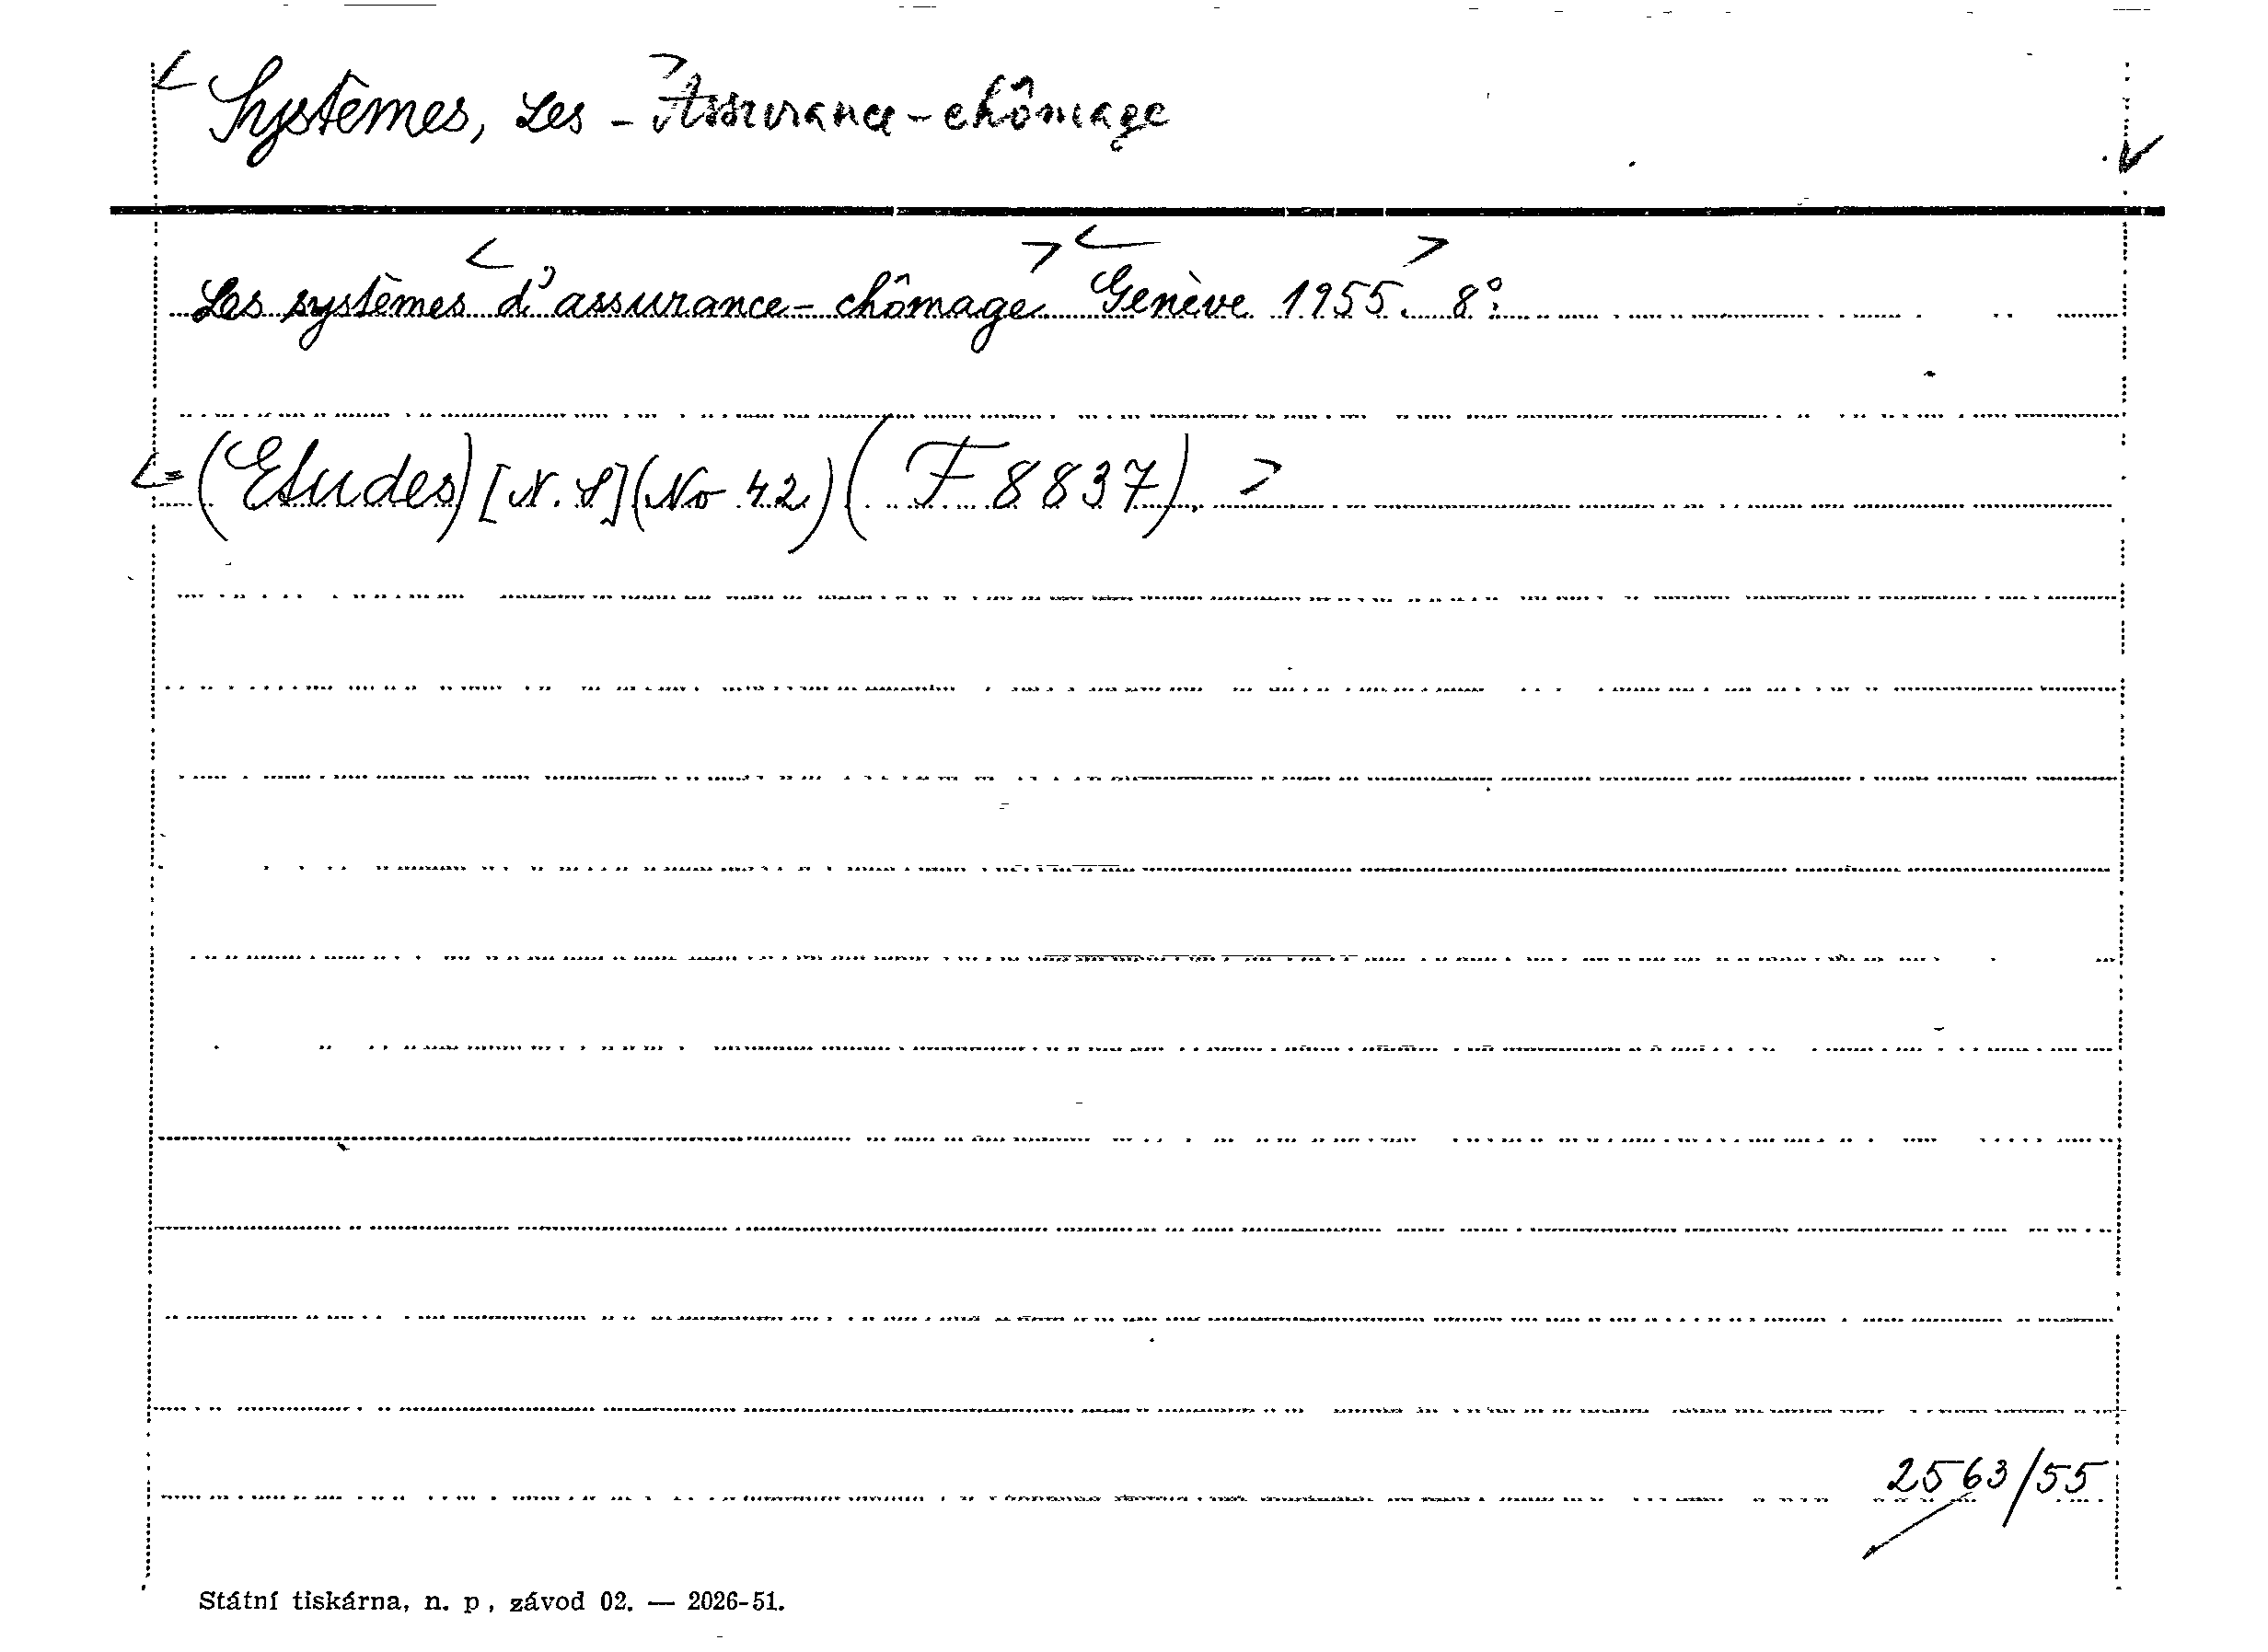 Systèmes, Les - Assurance-chômage
Les systèmes d'assurance-chômage Genève 1955. 8°.
= (Etudes) [N. S] (No 42) (F 8837).
2563/55
Státní tiskárna, n. p., závod 02. — 2026-51.